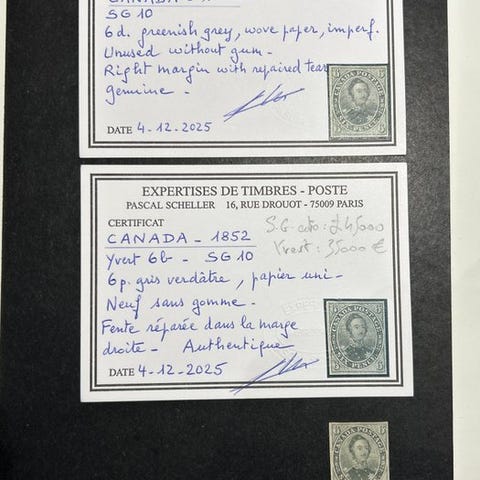 SG 10
6d. greenish grey, wove paper, imperf.
Unused without gum -
Right margin with repaired tear
genuine -
DATE 4-12-2025
CANADA POSTAGE
SIX PENCE
EXPERTISES DE TIMBRES - POSTE
PASCAL SCHELLER 16, RUE DROUOT - 75009 PARIS
CERTIFICAT
CANADA - 1852
Yvert 6b - SG 10
6p. gris verdâtre, papier uni -
Neuf sans gomme -
Fente réparée dans la marge
droite - Authentique
DATE 4-12-2025
Yvert : 35000 €
CANADA POSTAGE
SIX PENCE
CANADA POSTAGE